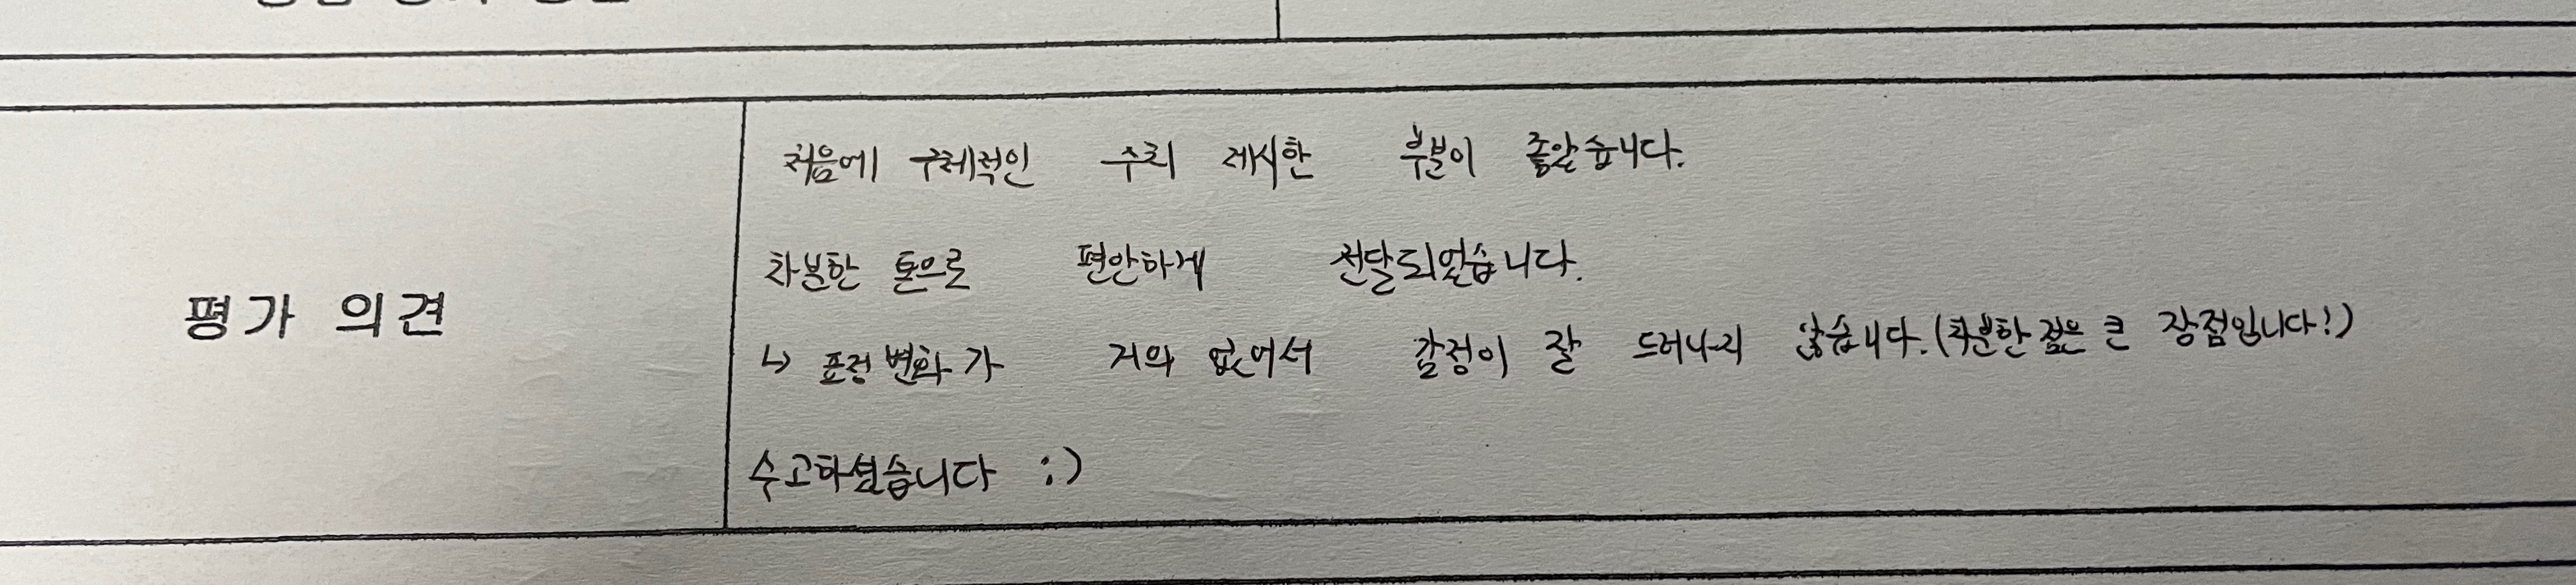 처음에 구체적인 수치 제시한 부분이 좋았습니다.
차분한 톤으로 편안하게 전달되었습니다.
평가 의견
↳ 표정변화가 거의 없어서 감정이 잘 드러나지 않습니다.(차분한 점은 큰 장점입니다!)
수고하셨습니다 :)